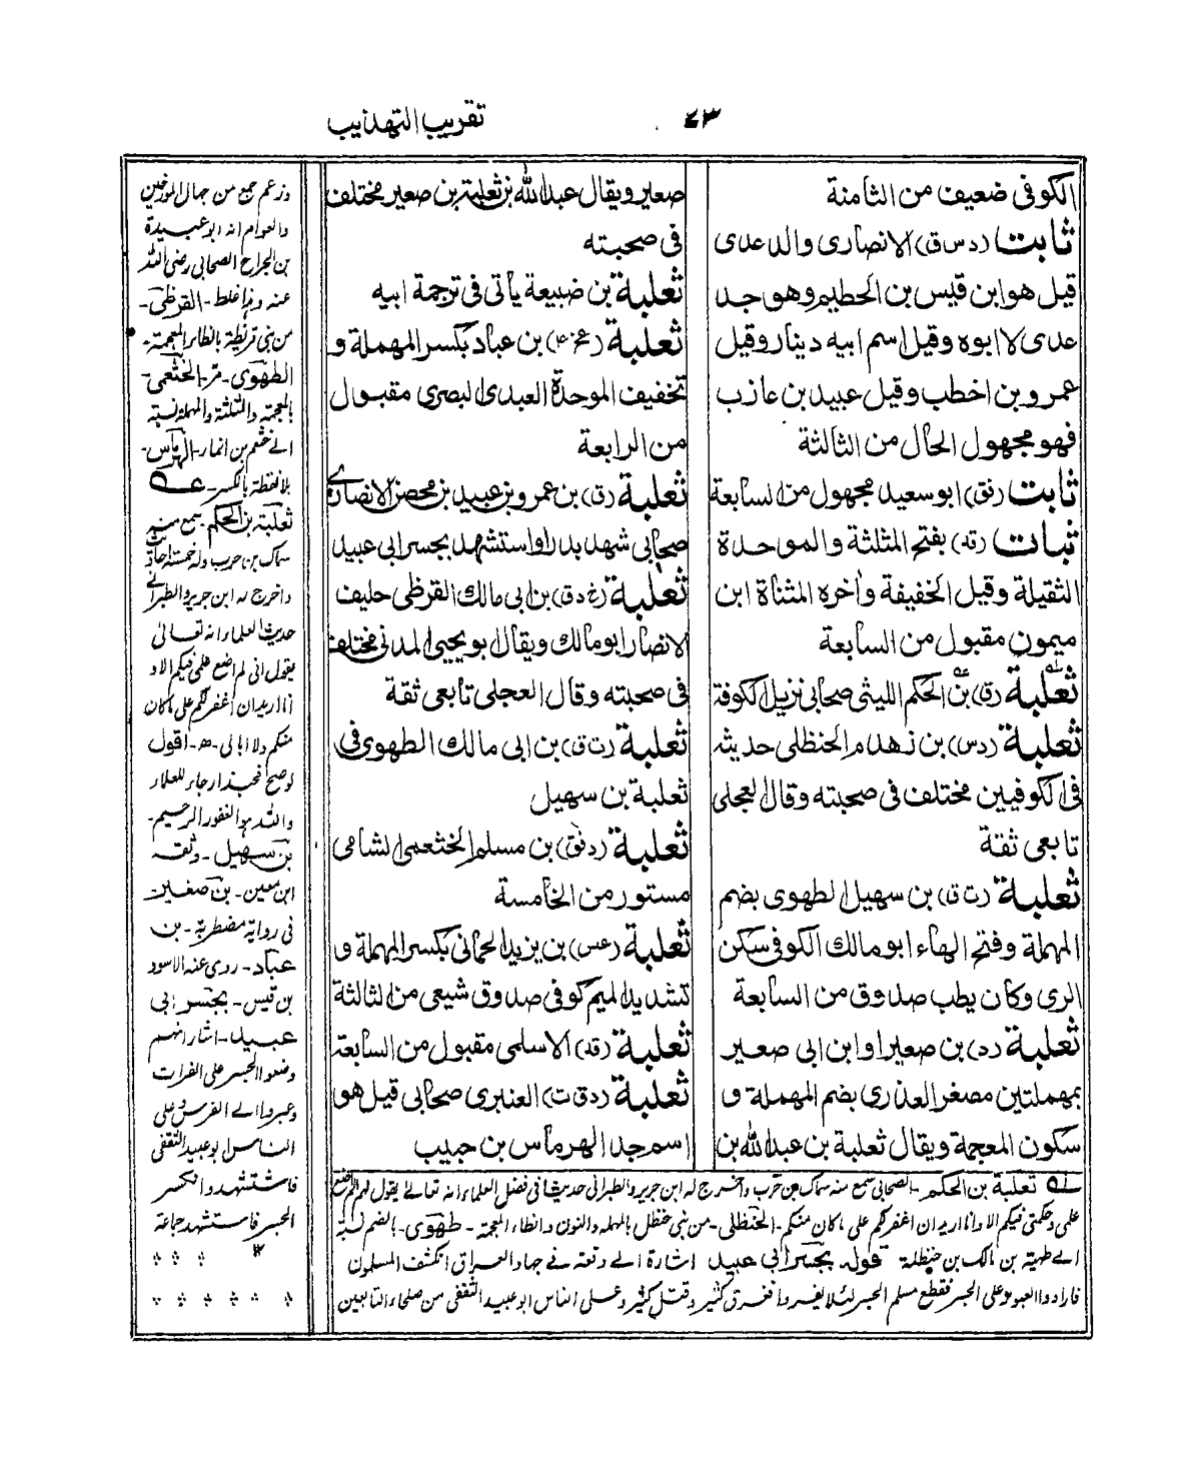 تقريب التهذيب
٤٣
الكوفى ضعيف من الثامنة
ثابت (دس ق) الانصارى والد عدى
قيل هو ابن قيس بن الحطيم وهو جد
عدى لا ابوه وقيل اسم ابيه دينار وقيل
عمرو بن اخطب وقيل عبيد بن عازب
فهو مجهول الحال من الثالثة
ثابت ابو سعيد مجهول من السابعة
ثبات بفتح المثلثة والموحدة
الثقيلة وقيل الخفيفة وأخره المثناة ابن
ميمون مقبول من السابعة
ثعلبة (ق) بن الحكم الليثى صحابى نزيل الكوفة
ثعلبة (دس) بن زهدم الحنظلى حديثه
فى الكوفيين مختلف فى صحبته وقال العجلى
تابعى ثقة
ثعلبة (ت ق) بن سهيل الطهوى بضم
المهملة وفتح الهاء ابو مالك الكوفى سكن
الرى وكان يطب صدوق من السابعة
ثعلبة (د) بن صعير او ابن ابى صعير
بمهملتين مصغر العذرى بضم المهملة و
سكون المعجمة ويقال ثعلبة بن عبد الله بن
صعير ويقال عبد الله بن ثعلبة بن صعير مختلف
فى صحبته
ثعلبة بن ضبيعة يأتى فى ترجمة ابيه
ثعلبة (عخ ٤) بن عباد بكسر المهملة و
تخفيف الموحدة العبدى البصرى مقبول
من الرابعة
ثعلبة (ق) بن عمرو بن عبيد بن محصن الانصارى
صحابى شهد بدرا واستشهد بجسر ابى عبيد
ثعلبة بن ابى مالك القرظى حليف
الانصار ابو مالك ويقال ابو يحيى المدنى مختلف
فى صحبته وقال العجلى تابعى ثقة
ثعلبة (ت ق) بن ابى مالك الطهوى فى
ثعلبة بن سهيل
ثعلبة بن مسلم الخثعمى الشامى
مستور من الخامسة
ثعلبة (عس) بن يزيد الحمانى بكسر المهملة و
تشديد الميم كوفى صدوق شيعى من الثالثة
ثعلبة الاسلمى مقبول من السابعة
ثعلبة (د ق ت) العنبرى صحابى قيل هو
اسم جد الهرماس بن حبيب
وزعم جمع من جهال المؤرخين
والعوام انه ابو عبيدة
بن الجراح الصحابى رضى الله
عنه وهذا غلط - القرظى -
من بنى قريظة بالظاء المعجمة -
الطهوى - مر - الخثعمى -
بالمعجمة والمثلثة والمهملة نسبة
الى خثعم بن انمار - الهرماس -
بلا نقطة بالكسر -
ثعلبة بن الحكم سمع منه
سماك بن حرب وله خمسة احاديث
واخرج له ابن جرير والطبرانى
حديث العلماء انه تعالى
يقول انى لم اضع علمى فيكم الا و
انا اريد ان اغفر لكم على ما كان
منكم ولا ابالى - ه - اقول
لو صح فحبذا رجاء للعلماء
والله هو الغفور الرحيم -
بن سهيل - وثقه
ابن معين - بن صعير
فى رواية مضطربة - بن
عباد - روى عنه الاسود
بن قيس - بجسر ابى
عبيد - اشار انهم
وضعوا الجسر على الفرات
وعبروا الى الفرس وعلى
الناس ابو عبيد الثقفى
فاستشهد وانكسر
الجسر فاستشهد جماعة
١٢
ثعلبة بن الحكم - الصحابى سمع منه سماك بن حرب واخرج له ابن جرير والطبرانى حديثا فى فضل العلماء انه تعالى يقول لهم لم اضع
علمى وحكمتى فيكم الا وانا اريد ان اغفر لكم على ما كان منكم - الحنظلى - من بنى حنظل بالمهملة والنون والظاء المعجمة - طهوى - بالضم نسبة
الى طهية بن مالك بن حنظلة قوله بجسر ابى عبيد اشارة الى وقعة فى جهاد العراق انكشف المسلمون
فارادوا العبور على الجسر فقطع مسلم الجسر لئلا يفروا فغرق كثير وقتل كثير وعلى الناس ابو عبيد الثقفى من صلحاء التابعين